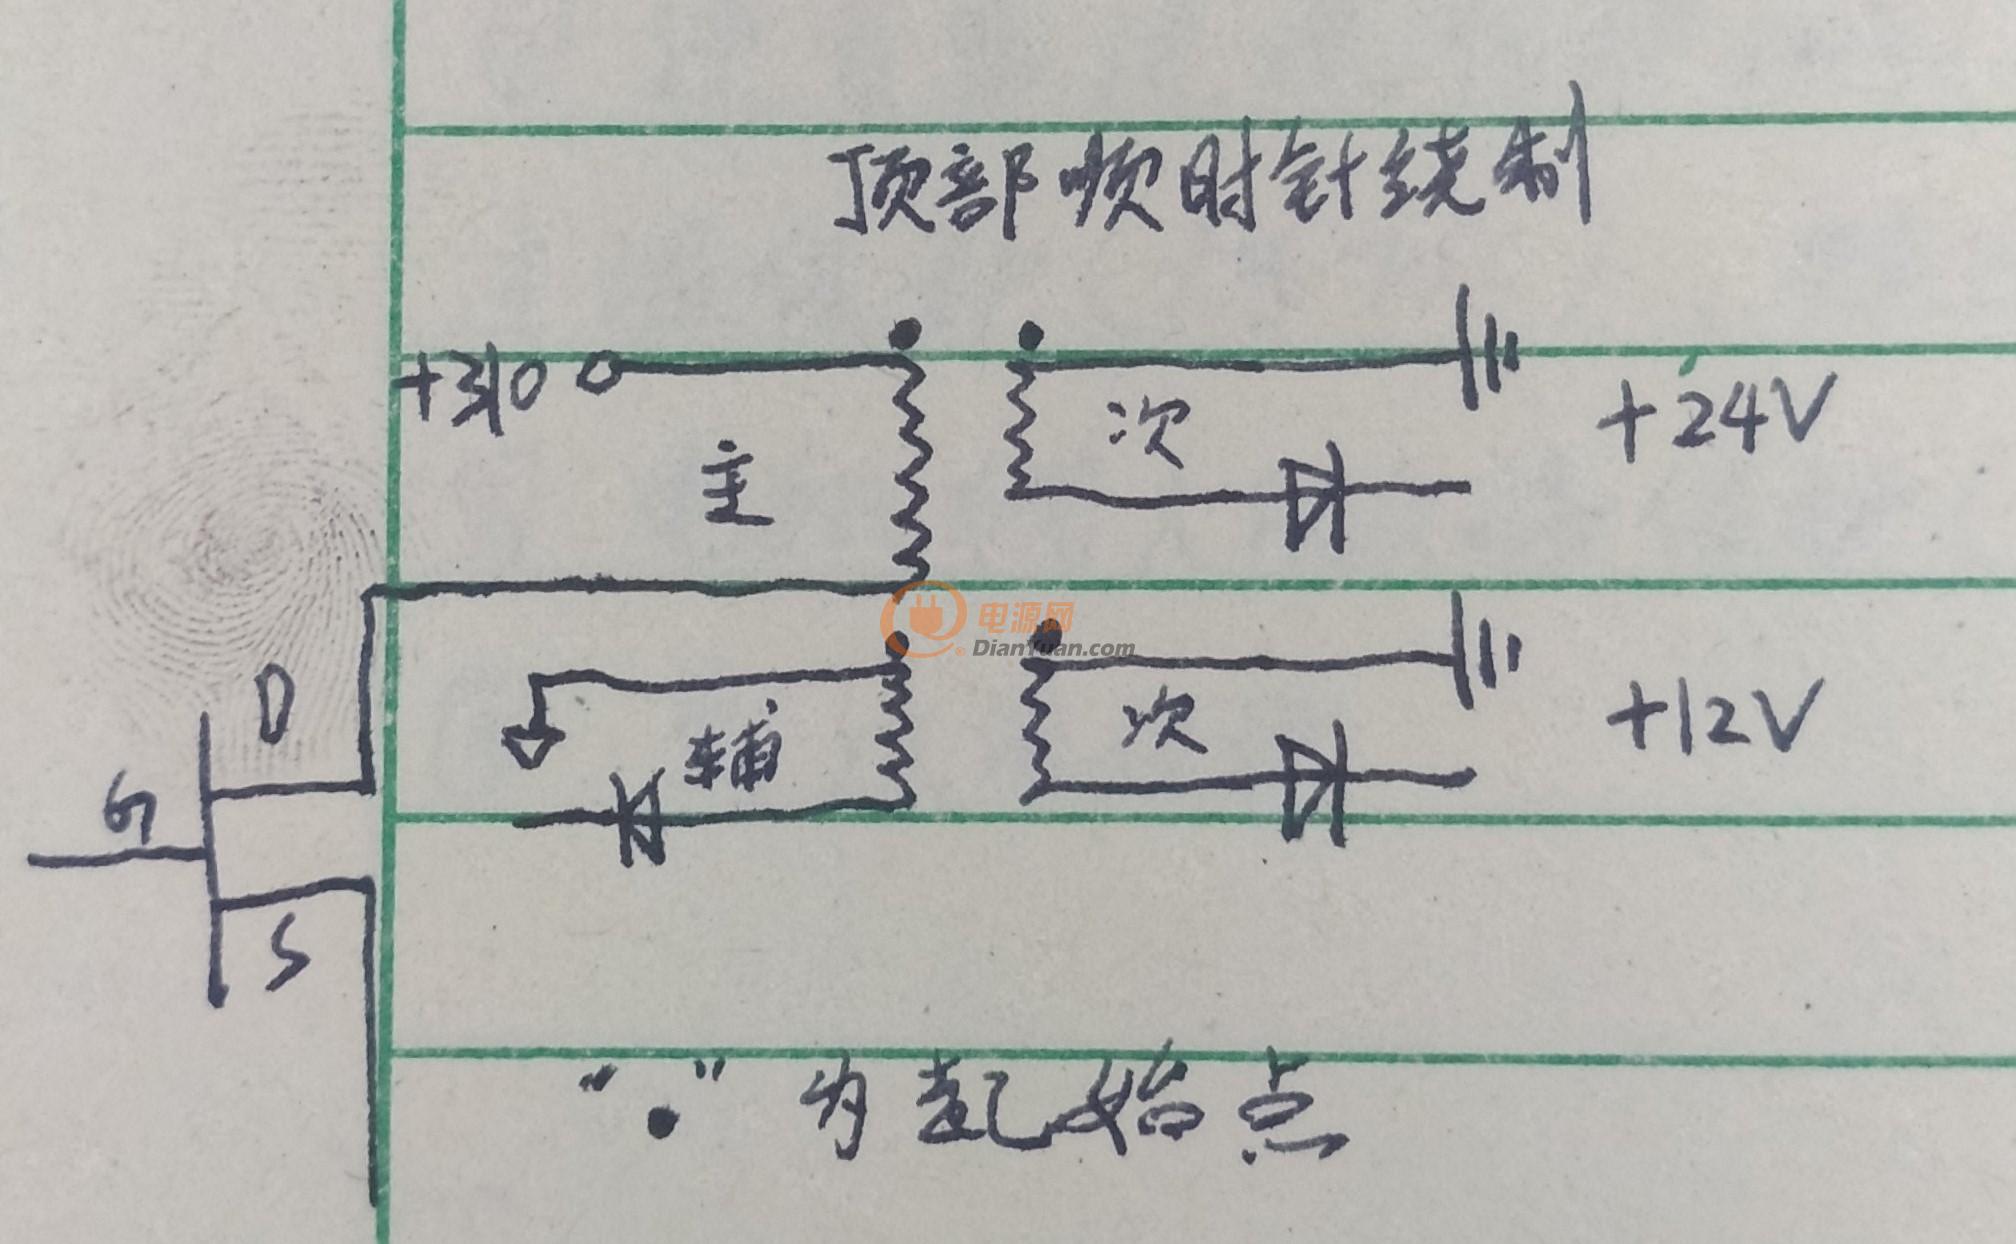 顶部顺时针绕制
+310
主
次
+24V
电源网
DianYuan.com
D
辅
次
+12V
G
S
“.”为起始点